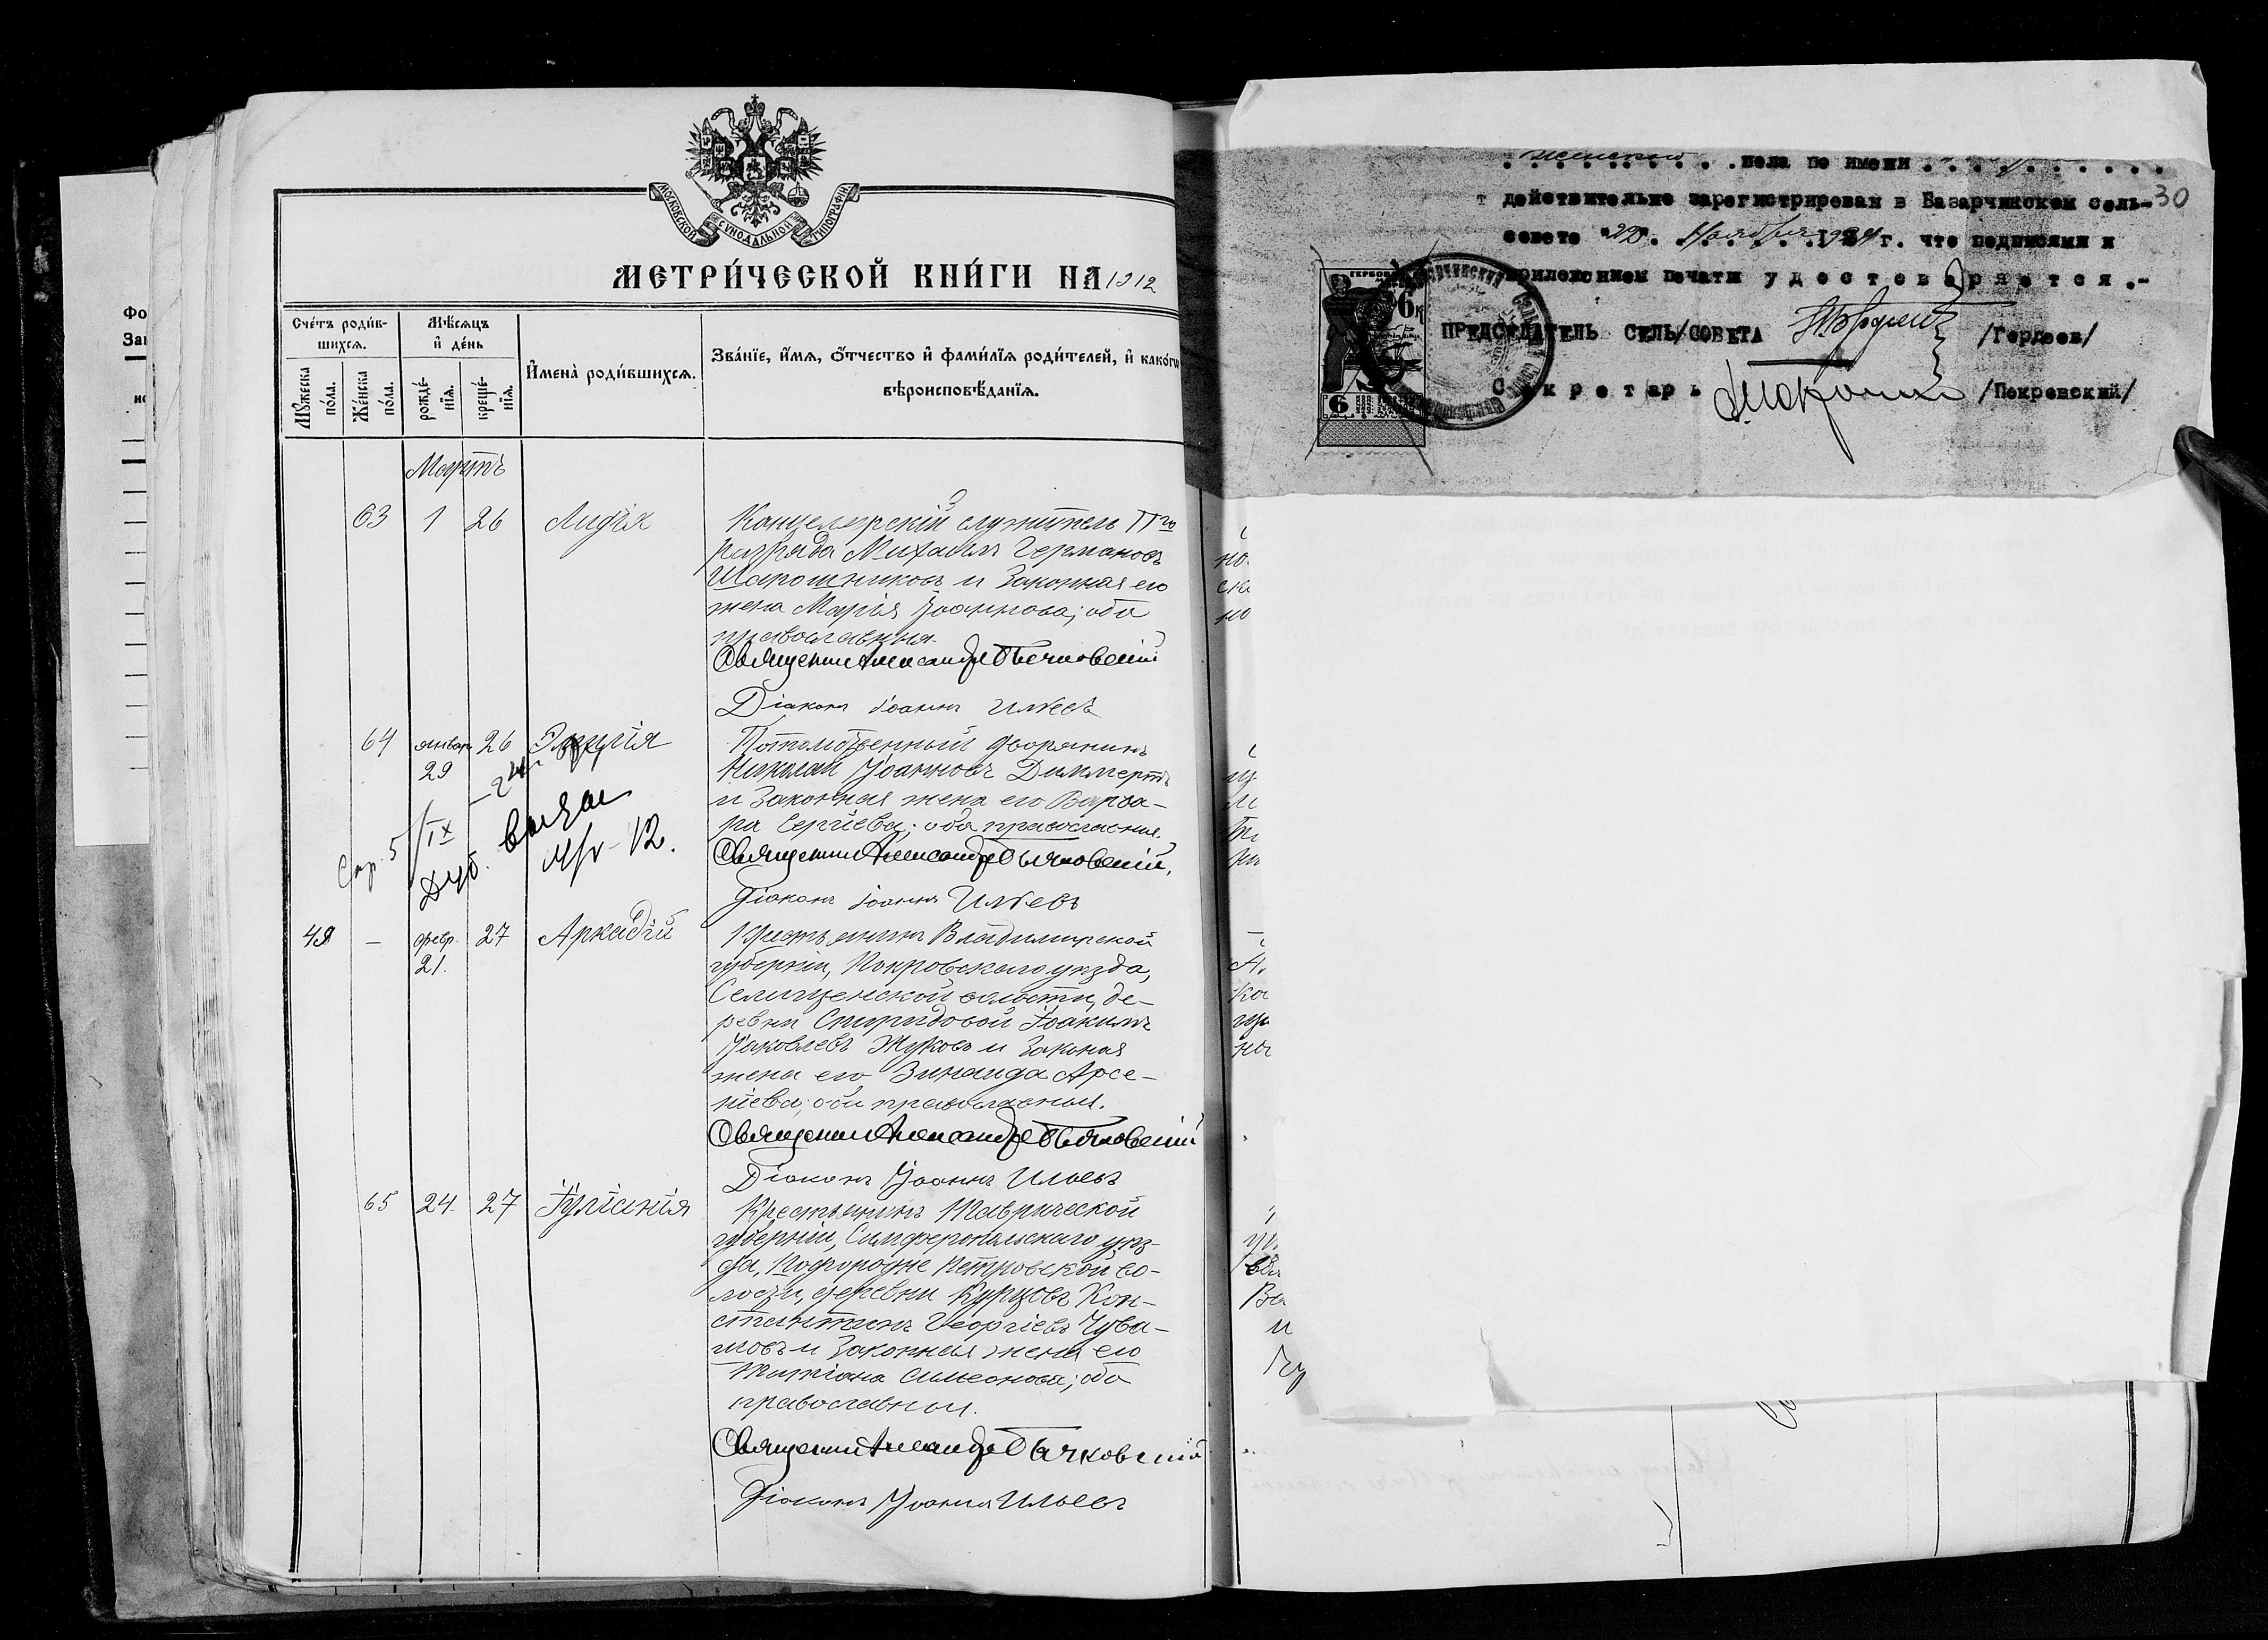 МОСКОВСКОЙ СѴНОДАЛЬНОЙ ТИПОГРАФІИ
МЕТРИ́ЧЕСКОЙ КНИ́ГИ НА 1912
Счетъ роди́вшихся.
Мѣсяцъ и҆ день
Мꙋжеска по́ла.
Же́нска по́ла.
рожде́нїя.
креще́нїя.
И҆мена̀ роди́вшихся.
Зва́нїе, и҆́мя, ѻ҆́тчество и҆ фами́лїя роди́телей, и҆ како́гѡ
вѣроисповѣ́данїя.
Мартъ
63 1 26 Лидія
Канцелярскій служитель IIго
разряда Михаилъ Германовъ
Шапошниковъ и законная его
жена Марія Іоаннова; оба
православныя.
Священник Александр
Діаконъ Іоаннъ Ильевъ
64 январ. 29 26
Потомственный дворянинъ
Николай Іоанновъ Диммертъ
и законная жена его Варва-
ра Сергіева; оба православныя.
Священник Александр
Діаконъ Іоаннъ Ильевъ
Стр. 5/IX
Дуб. выдан
49 – февр. 21. 27 Аркадій
Крестьянинъ Владимирской
губерніи, Покровскаго уѣзда,
Селищенской волости, де-
ревни Спиридовой Іоакимъ
Іаковлевъ Жуковъ и законная
жена его Зинаида Арсе-
ніева; оба православныя.
Священник Александр
Діаконъ Іоаннъ Ильевъ
65 24. 27 Іуліанія
Крестьянинъ Таврической
губерніи, Симферопольскаго уѣз-
да, Подгородне Петровской во-
лости, деревни Курцовъ Кон-
стантинъ Георгіевъ Чува-
шовъ и законная жена его
Татіана Симеонова; оба
православныи.
Священник Александр
Діаконъ Іоаннъ Ильевъ
женского пола по имени
30
т действительно зарегистрирован в Базарчикском сель-
совете "22" Ноября 1924 г. что подписями и
приложением печати у д о с т о в е р я е т с я .-
ПРЕДСЕДАТЕЛЬ СЕЛЬ/СОВЕТА /Гордеев/
С е к р е т а р ь /Покровский/
6к
6
Фо
За